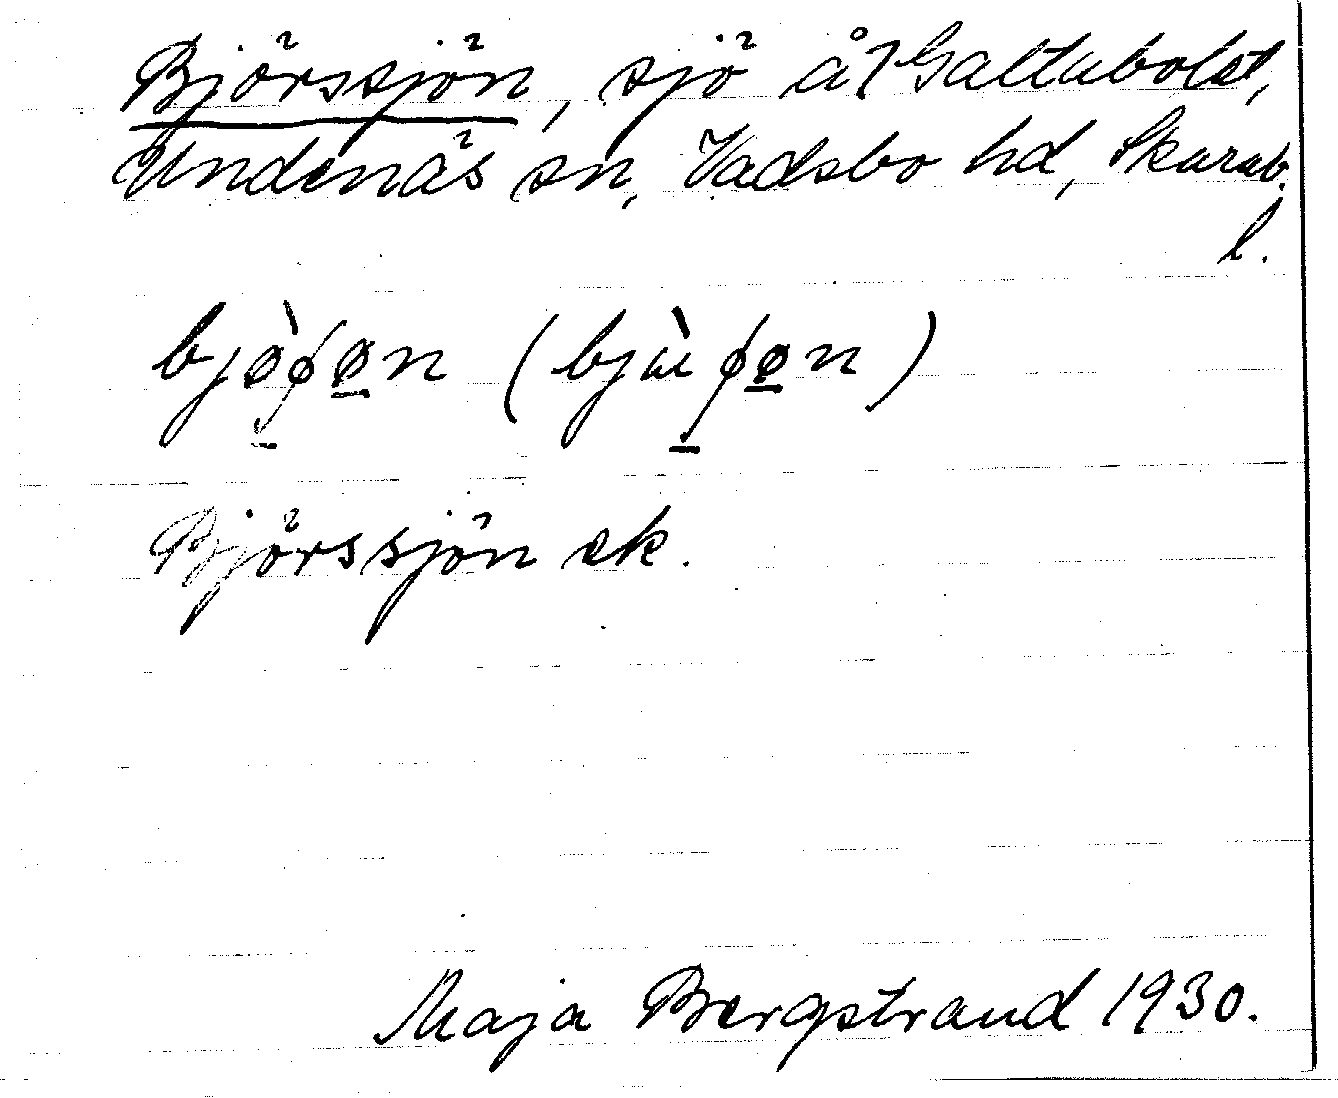 Björssjön, sjö å Galtabolet,
Undenäs sn, Vadsbo hd, Skarab.
l.
Björssjön ek.
Maja Bergstrand 1930.